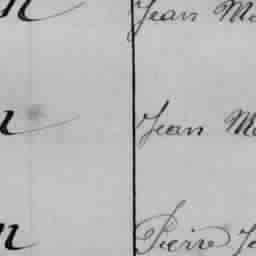 n Jean M
n Jean M
n Pierre J